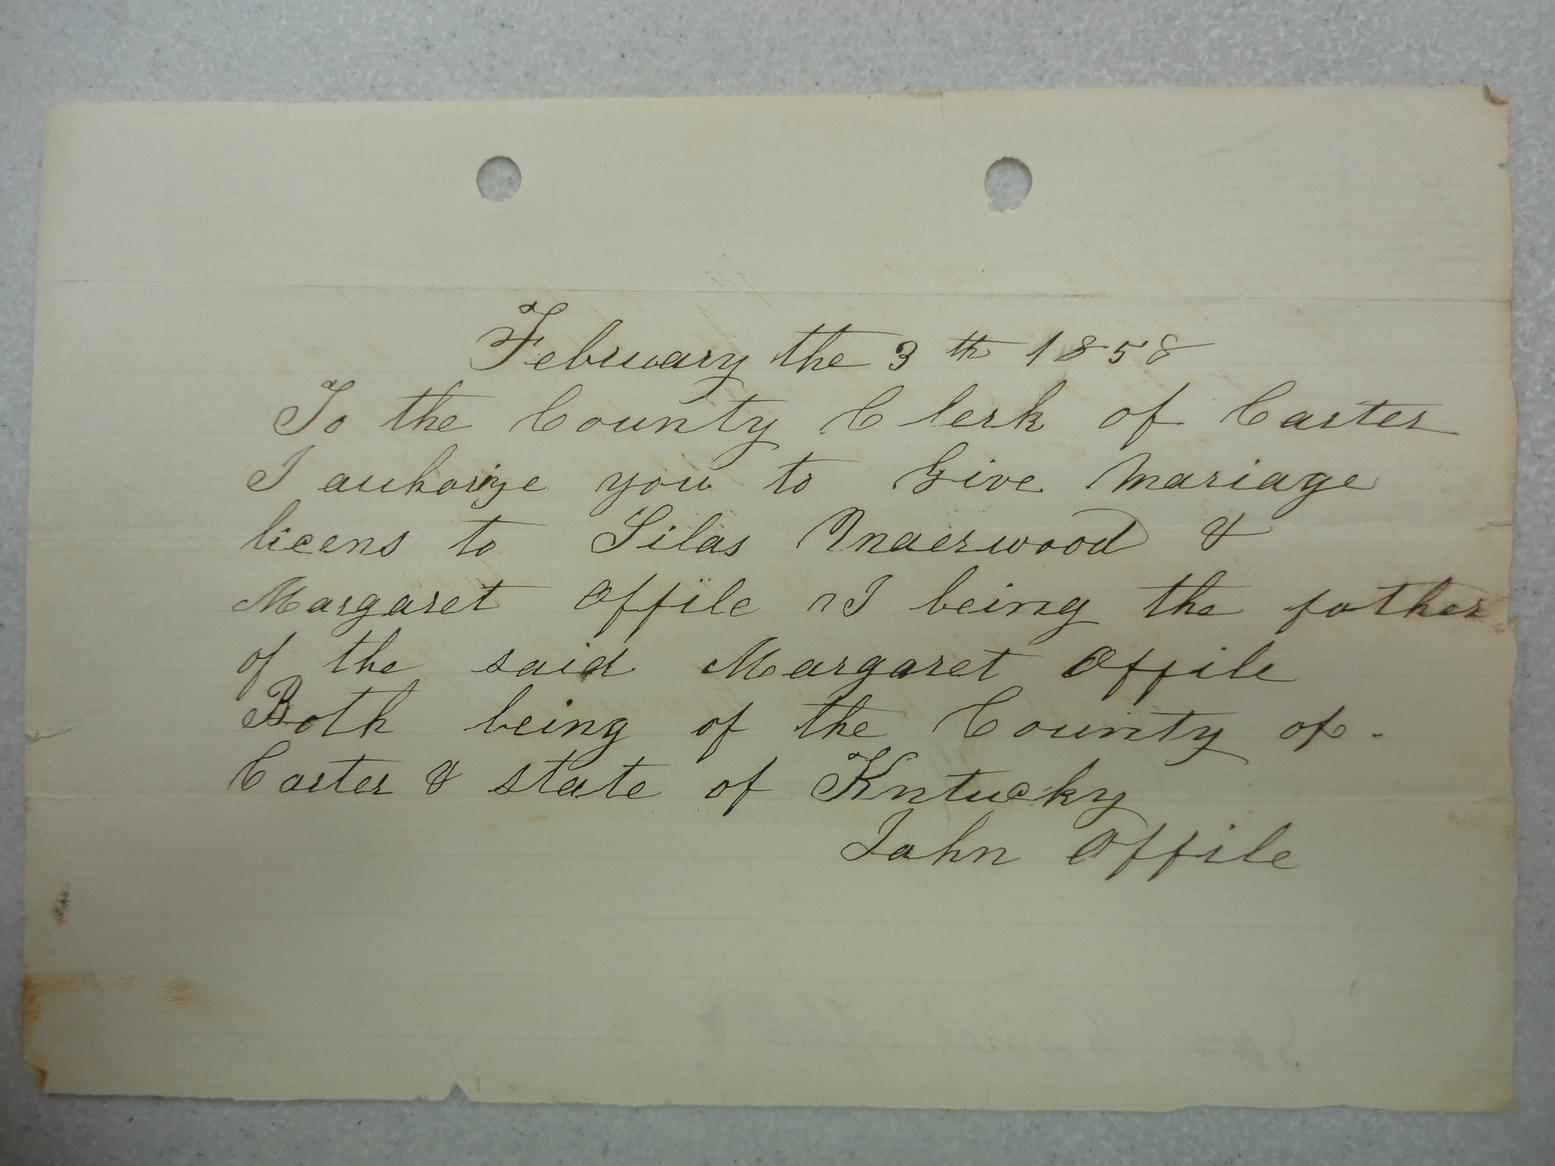 February the 3th 1858
To the County Clerk of Carter
I auhorize you to Give Mariage
licens to Silas Underwood &
Margaret Offile I being the father
of the said Margaret Offile
Both being of the County of
Carter & state of Kntucky
John Offile